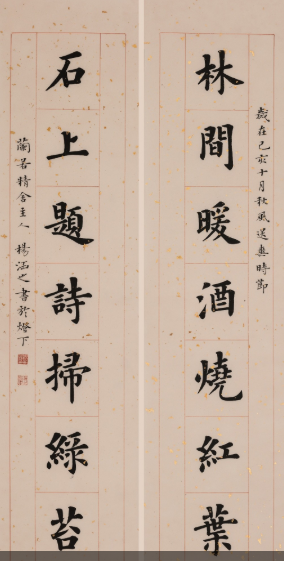 歲在己亥十月秋風送爽時節
林間暖酒燒紅葉
石上題詩掃綠苔
蘭若精舍主人楊涵之書於燈下